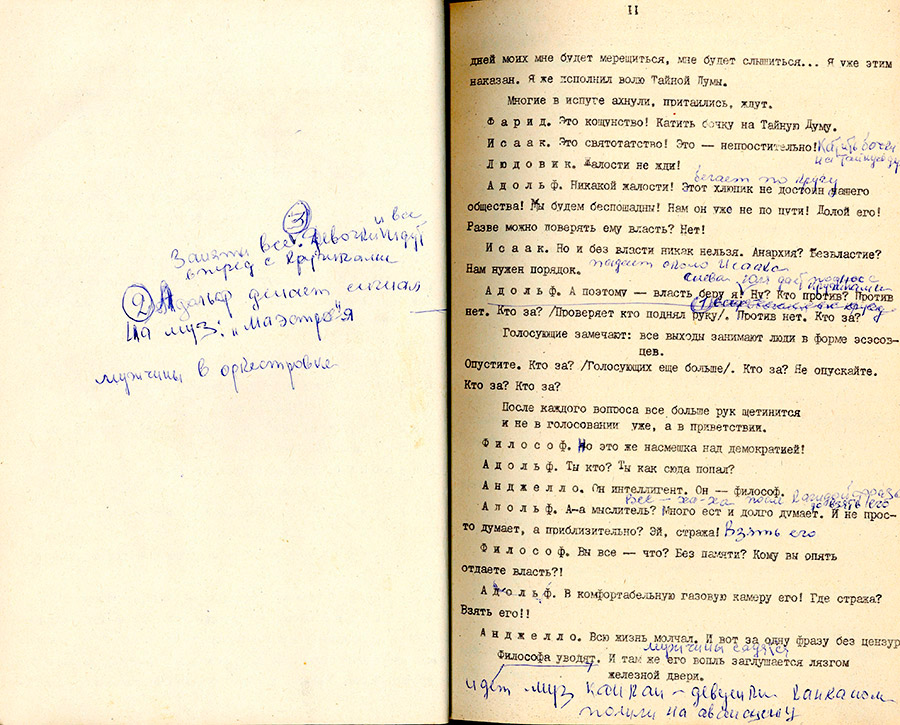 3
и все
Заняты все. Девочки идут
вперед с
2 делает сигнал
На муз: „Маэстро"
мужчины в оркестровке
11
дней моих мне будет мерещиться, мне будет слышиться... Я уже этим
наказан. Я же исполнил волю Тайной Думы.
Многие в испуге ахнули, притаились, ждут.
Фарид. Это кощунство! Катить бочку на Тайную Думу.
Исаак. Это святотатство! Это — непростительно! Катить бочку
на Тайную Ду
Людовик. Жалости не жди!
бегает по кругу
Адольф. Никакой жалости! Этот хлюпик не достоин нашего
общества! Мы будем беспощадны! Нам он уже не по пути! Долой его!
Разве можно поверять ему власть? Нет!
Исаак. Но и без власти никак нельзя. Анархия? Безвластие?
Нам нужен порядок. падает около Исаака
слева
Адольф. А поэтому — власть беру я! Ну? Кто против? Против
нет. Кто за? /Проверяет кто поднял руку/. Против нет. Кто за?
Голосующие замечают: все выходы занимают люди в форме эсэсов-
цев.
Опустите. Кто за? /Голосующих еще больше/. Кто за? Не опускайте.
Кто за? Кто за?
После каждого вопроса все больше рук щетинится
и не в голосовании уже, а в приветствии.
Философ. Но это же насмешка над демократией!
Адольф. Ты кто? Ты как сюда попал?
Анджелло. Он интеллигент. Он — философ.
Все — ха-ха после каждой фразы
до взять его
Адольф. А-а мыслитель? Много ест и долго думает. И не прос-
то думает, а приблизительно? Эй, стража! Взять его
Философ. Вы все — что? Без памяти? Кому вы опять
отдаете власть?!
Адольф. В комфортабельную газовую камеру его! Где стража?
Взять его!!
Анджелло. Всю жизнь молчал. И вот за одну фразу без цензур
мужчины садятся
Философа уводят. И там же его вопль заглушается лязгом
железной двери.
идет муз Канкан — девушки канканом
пошли на авансцену